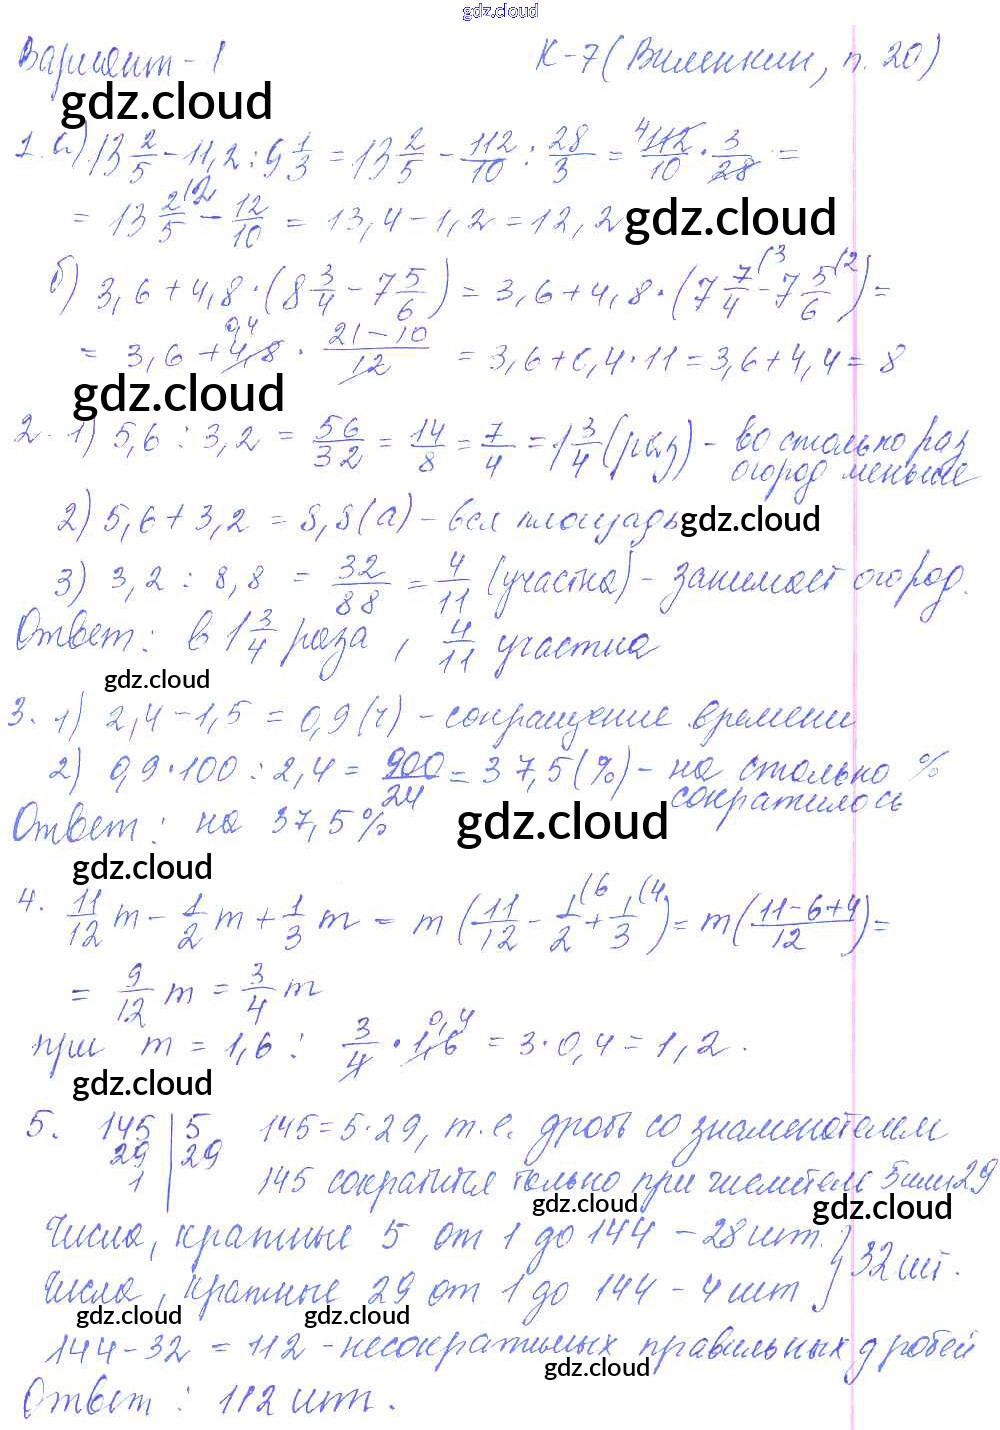 gdz.cloud
Вариант-1 К-7 (Виленкин, п. 20)
gdz.cloud
1. а) 13 2/5 - 11,2 : 9 1/3 = 13 2/5 - 112/10 : 28/3 = 4 112/10 · 3/28 =
= 13 2/5 (2 - 12/10 = 13,4 - 1,2 = 12,2
gdz.cloud
б) 3,6 + 4,8 · (8 3/4 - 7 5/6) = 3,6 + 4,8 · (7 7/4 (3 - 7 5/6 (2) =
= 3,6 + 4,8 0,4 · 21-10/12 = 3,6 + 0,4 · 11 = 3,6 + 4,4 = 8
gdz.cloud
2. 1) 5,6 : 3,2 = 56/32 = 14/8 = 7/4 = 1 3/4 (раз) - во столько раз
огород меньше
2) 5,6 + 3,2 = 8,8 (а) - вся площадь
gdz.cloud
3) 3,2 : 8,8 = 32/88 = 4/11 (участка) - занимает огород.
Ответ: в 1 3/4 раза, 4/11 участка
gdz.cloud
3. 1) 2,4 - 1,5 = 0,9 (ч) - сокращение времени
2) 0,9 · 100 : 2,4 = 900/24 = 37,5 (%) - на столько %
сократилось
Ответ: на 37,5%
gdz.cloud
gdz.cloud
4. 11/12 m - 1/2 m + 1/3 m = m (11/12 - 1/2 (6 + 1/3 (4) = m (11-6+4/12) =
= 9/12 m = 3/4 m
при m = 1,6 : 3/4 · 1,6 0,4 = 3 · 0,4 = 1,2.
gdz.cloud
5. 145 | 5 145 = 5 · 29, т.е. дробь со знаменателем
29 | 29
1 | 145 сократится только при числителе 5 или 29
gdz.cloud gdz.cloud
Числа, кратные 5 от 1 до 144 - 28 шт.
Числа, кратные 29 от 1 до 144 - 4 шт } 32 шт.
gdz.cloud gdz.cloud
144 - 32 = 112 - несократимых правильных дробей
gdz.cloud
Ответ: 112 шт.